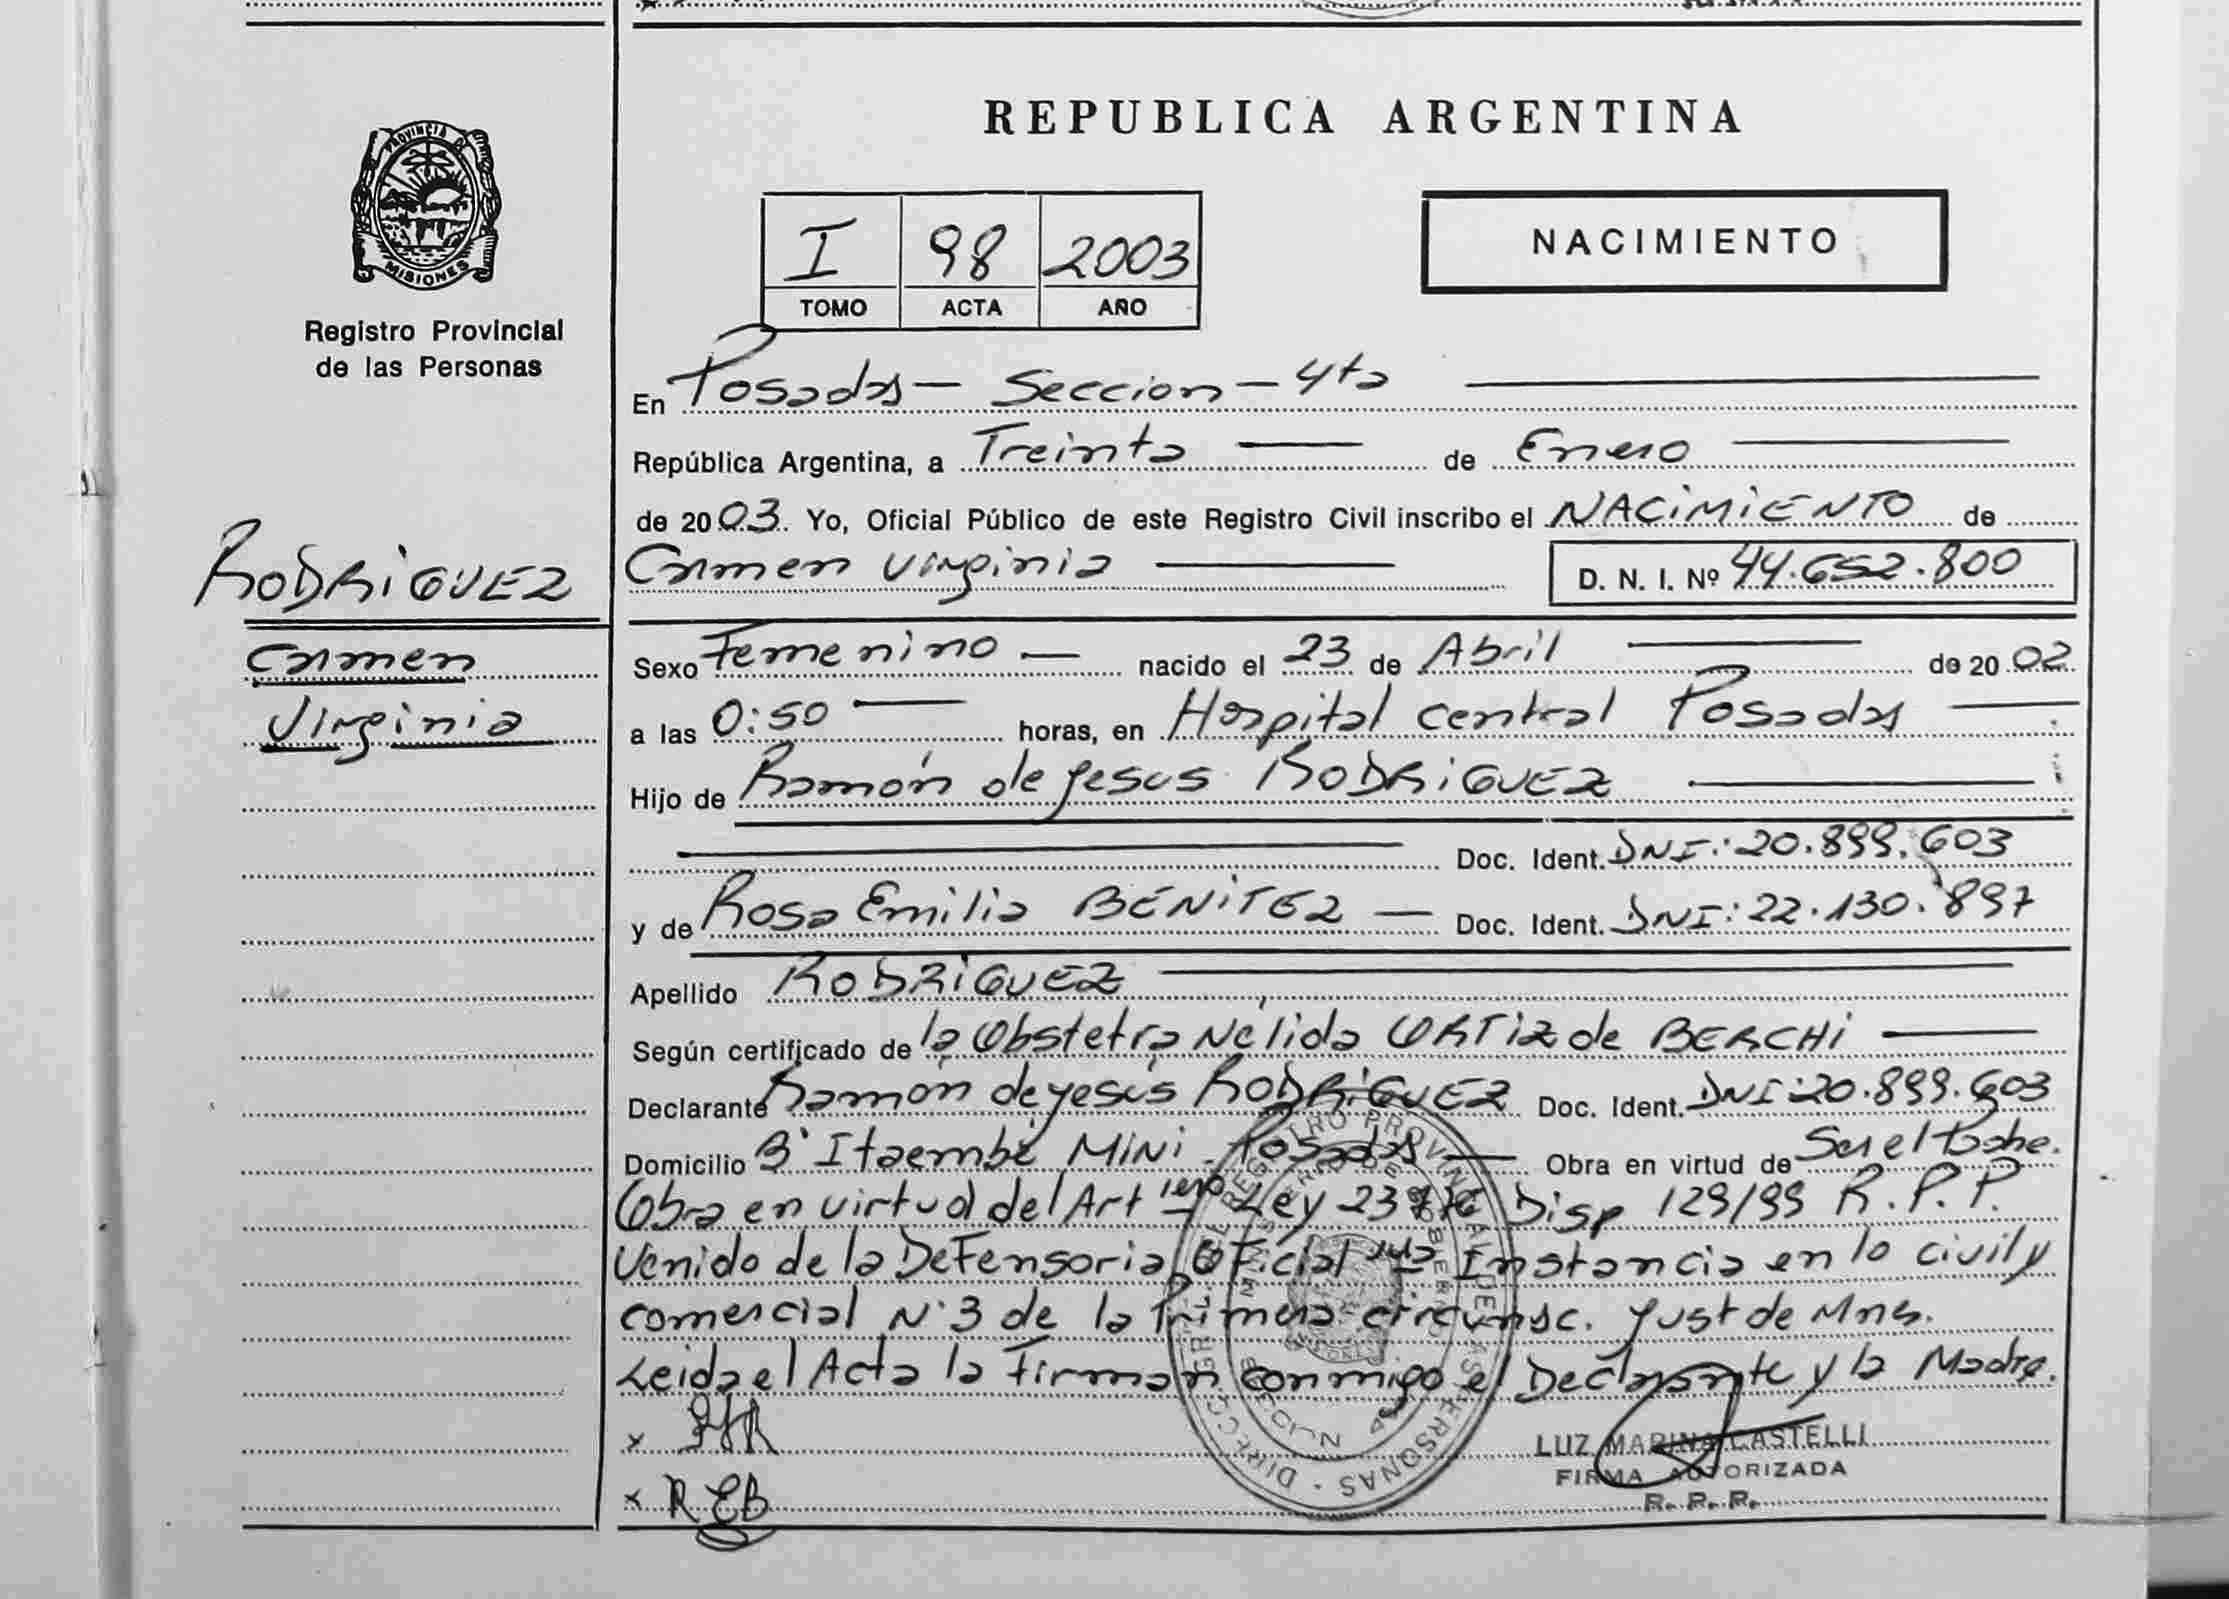 PROVINCIA DE
MISIONES
Registro Provincial
de las Personas
RODRIGUEZ
Carmen
Virginia
REPUBLICA ARGENTINA
I 98 2003
TOMO ACTA AÑO
NACIMIENTO
En Posadas - Seccion - 4ta
República Argentina, a Treinta de Enero
de 2003. Yo, Oficial Público de este Registro Civil inscribo el NACIMIENTO de
Carmen Virginia D. N. I. Nº 44.652.800
Sexo Femenino nacido el 23 de Abril de 2002
a las 0:50 horas, en Hospital central Posadas
Hijo de Ramón de Jesus RODRIGUEZ
Doc. Ident. DNI: 20.899.603
y de Rosa Emilia BENITEZ Doc. Ident. DNI: 22.130.897
Apellido RODRIGUEZ
Según certificado de la Obstetra Nélida ORTIZ de BERCHI
Declarante Ramón de Jesús RODRIGUEZ Doc. Ident. DNI: 20.899.603
Domicilio Bº Itaembé Mini - Posadas Obra en virtud de Ser el Padre.
Obra en virtud del Art 1ero Ley Disp 129/99 R.P.P.
Venido de la Defensoria Oficial Instancia en lo civil y
comercial Nº 3 de la Primera circunsc. Just de Mnes.
Leida el Acta la Firman conmigo el Declarante y la Madre.
x
x REB
LUZ MARINA CASTELLI
FIRMA AUTORIZADA
R. P. P.